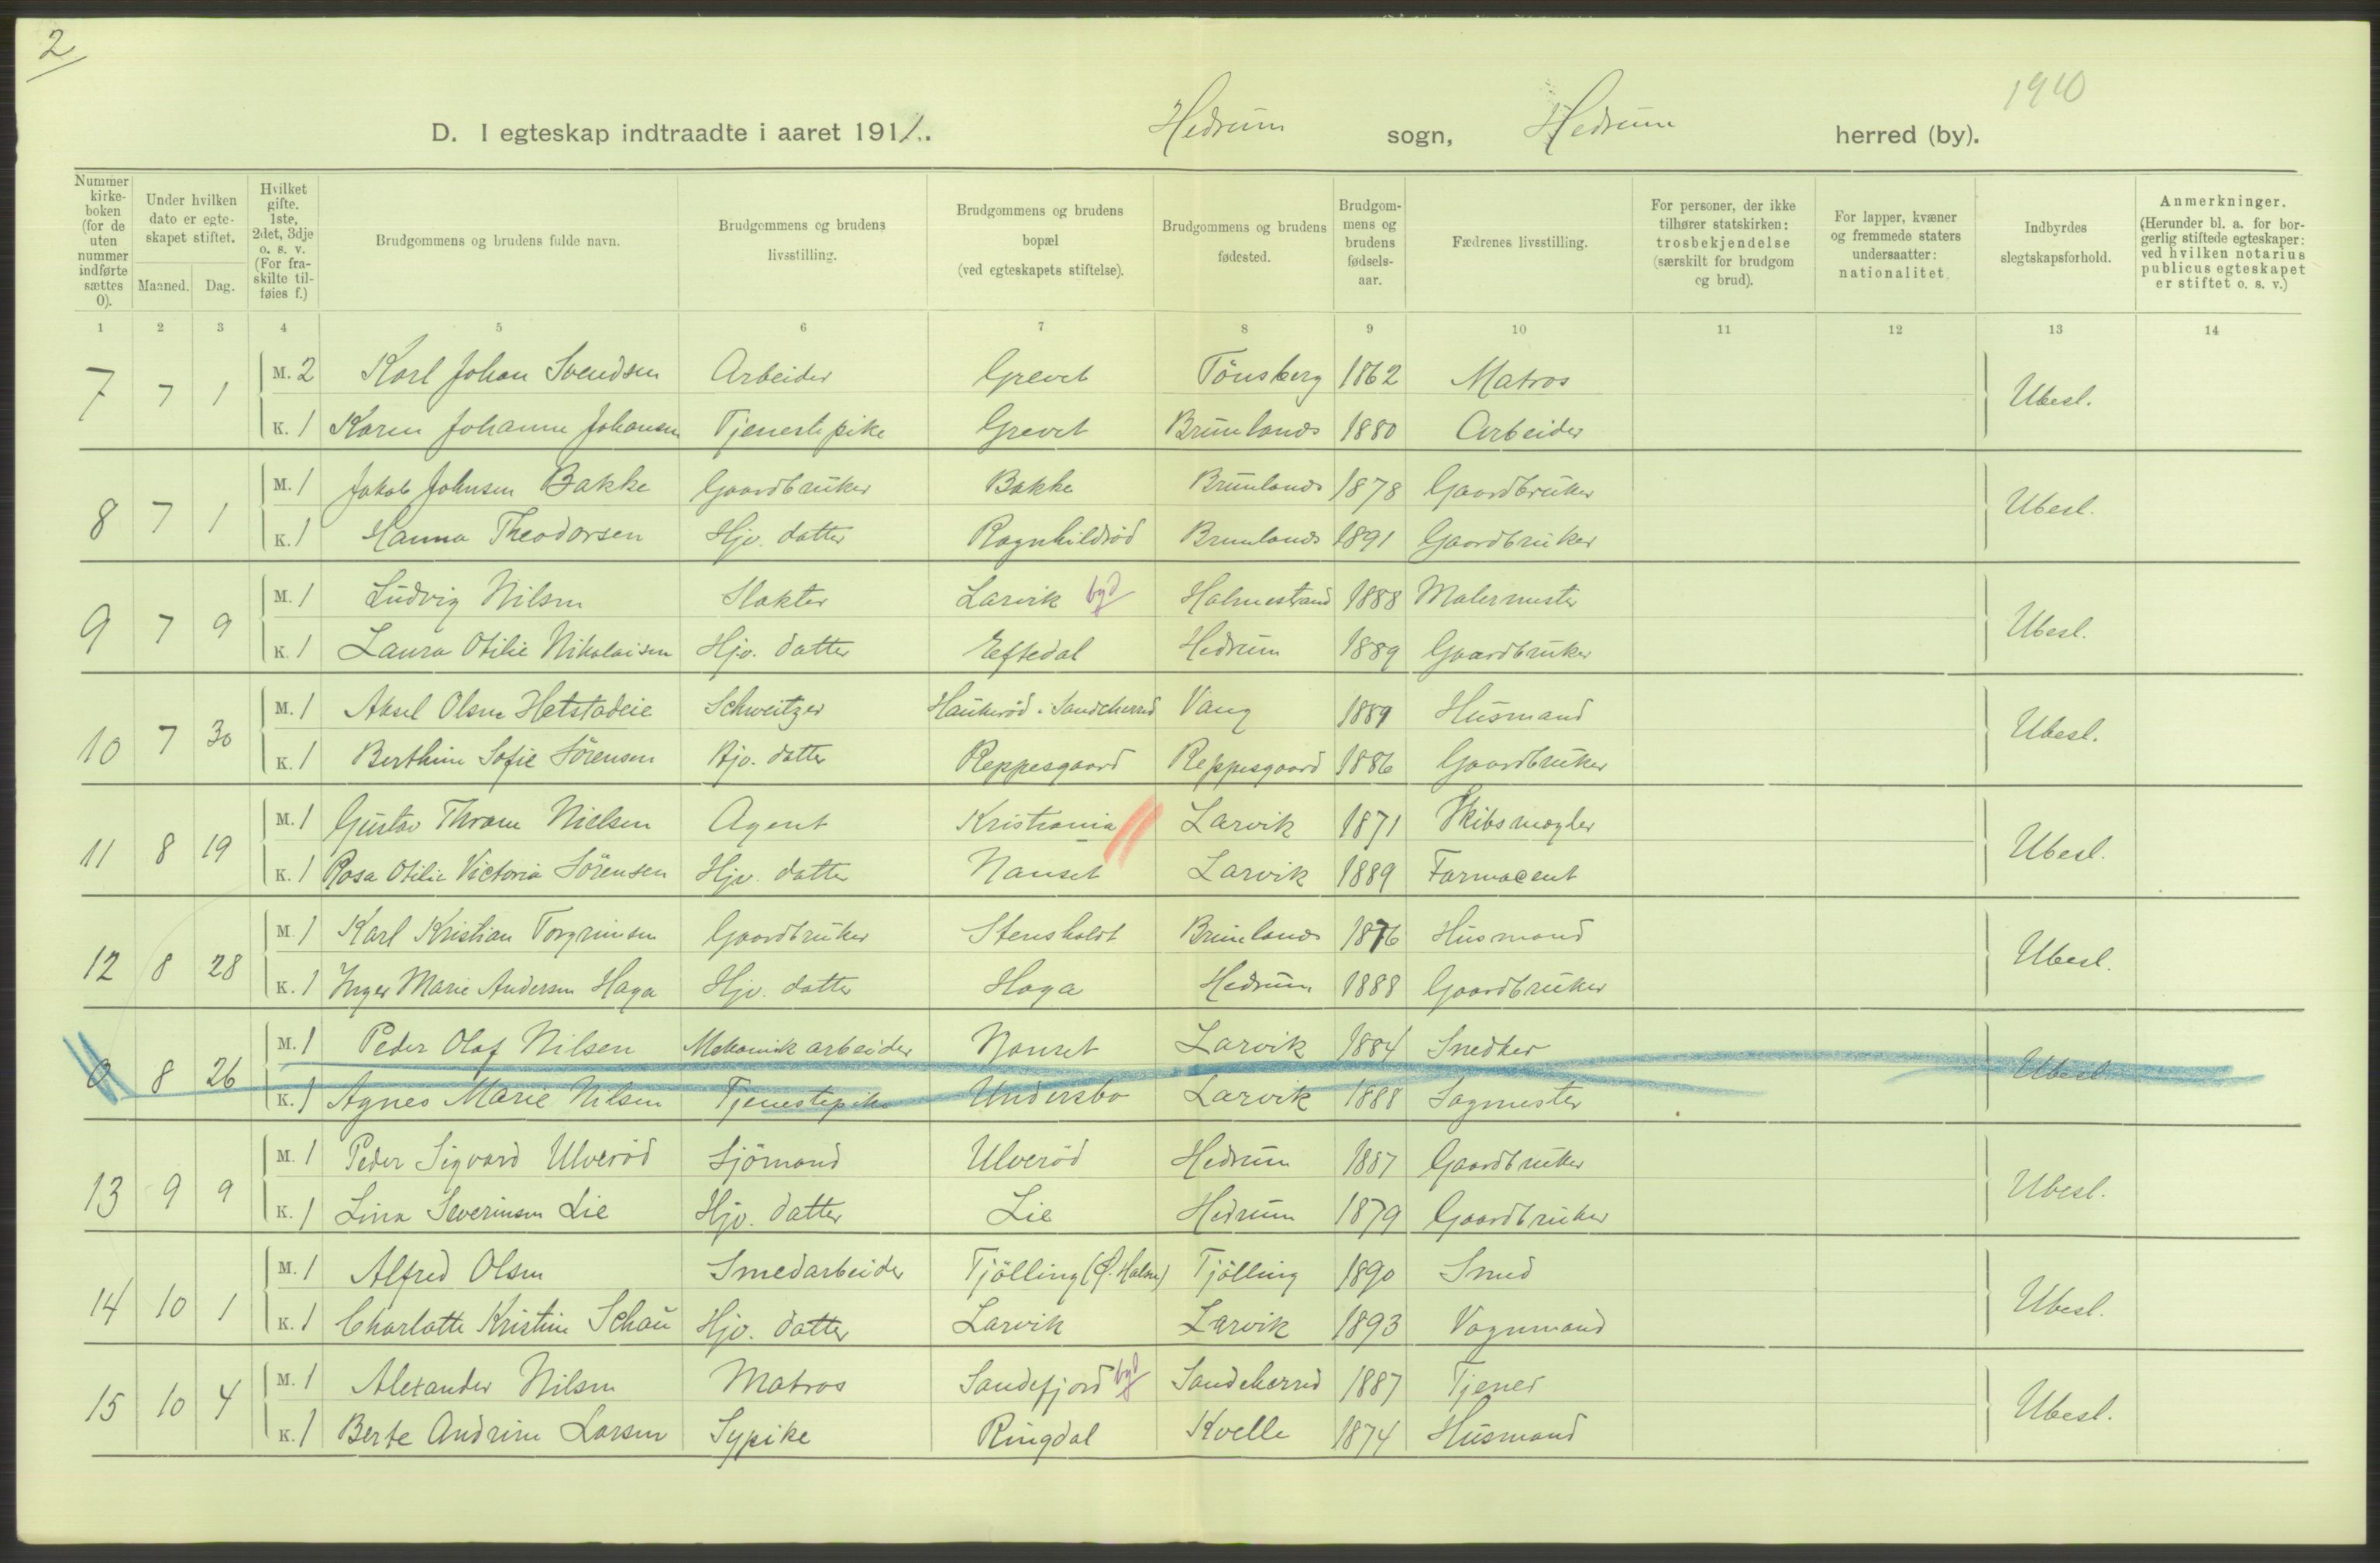 2
1910
D. I egteskap indtraadte i aaret 1911. Hedrum sogn, Hedrum herred (by).
Nummer kirke-boken (for de uten nummer indførte sættes 0).
Under hvilken dato er egte-skapet stiftet.
Maaned. Dag.
Hvilket gifte. 1ste, 2det, 3dje o. s. v. (For fra-skilte til-føies f.)
Brudgommens og brudens fulde navn.
Brudgommens og brudens livsstilling.
Brudgommens og brudens bopæl (ved egteskapets stiftelse).
Brudgommens og brudens fødested.
Brudgom-mens og brudens fødsels-aar.
Fædrenes livsstilling.
For personer, der ikke tilhører statskirken: trosbekjendelse (særskilt for brudgom og brud).
For lapper, kvæner og fremmede staters undersaatter: nationalitet
Indbyrdes slegtskapsforhold.
Anmerkninger. (Herunder bl. a. for bor-gerlig stiftede egteskaper: ved hvilken notarius publicus egteskapet er stiftet o. s. v.)
1 2 3 4 5 6 7 8 9 10 11 12 13 14
7 7 1 M. 2 Karl Johan Svendsen Arbeider Grevet Tönsberg 1862 Matros Ubesl.
K. 1 Karen Johanne Johansen Tjenestepike Grevet Brunlanes 1880 Arbeider
8 7 1 M. 1 Jakob Johnsen Bakke Gaardbruker Bakke Brunlanes 1878 Gaardbruker Ubesl.
K. 1 Hanna Theodorsen Hjv. datter Ragnhildröd Brunlanes 1891 Gaardbruker
9 7 9 M. 1 Ludvig Nilsen Slakter Larvik byd Holmestrand 1888 Malermester Ubesl.
K. 1 Laura Otilie Nikolaisen Hjv. datter Eftedal Hedrum 1889 Gaardbruker
10 7 30 M. 1 Aksel Olsen Hetstadeie Schweitzer Haukeröd i Sandeherred Vang 1889 Husmand Ubesl.
K. 1 Berthine Sofie Sörensen Hjv. datter Reppesgaard Reppesgaard 1886 Gaardbruker
11 8 19 M. 1 Gustav Thrane Nielsen Agent Kristiania Larvik 1871 Skibsmægler Ubesl.
K. 1 Rosa Otilie Victoria Sörensen Hjv. datter Nanset Larvik 1889 Farmaceut
12 8 28 M. 1 Karl Kristian Torgrimsen Gaardbruker Stensholdt Brunlanes 1876 Husmand Ubesl.
K. 1 Inger Marie Andersen Haga Hjv. datter Haga Hedrum 1888 Gaardbruker
0 8 26 M. 1 Peder Olaf Nilsen Mekanisk arbeider Nanset Larvik 1884 Snedker Ubesl
K. 1 Agnes Marie Nilsen Tjenestepike Undersbo Larvik 1888 Sagmester
13 9 9 M. 1 Peder Sigvard Ulveröd Sjömand Ulveröd Hedrum 1887 Gaardbruker Ubesl.
K. 1 Lina Severinsen Lie Hjv. datter Lie Hedrum 1879 Gaardbruker
14 10 1 M. 1 Alfred Olsen Smedarbeider Tjölling Tjölling 1890 Smed Ubesl.
K. 1 Charlotte Kristine Schau Hjv. datter Larvik Larvik 1893 Vognmand
15 10 4 M. 1 Alexander Nilsen Matros Sandefjord byd Sandeherred 1887 Tjener Ubesl.
K. 1 Berte Andrine Larsen Sypike Ringdal Kvelle 1874 Husmand